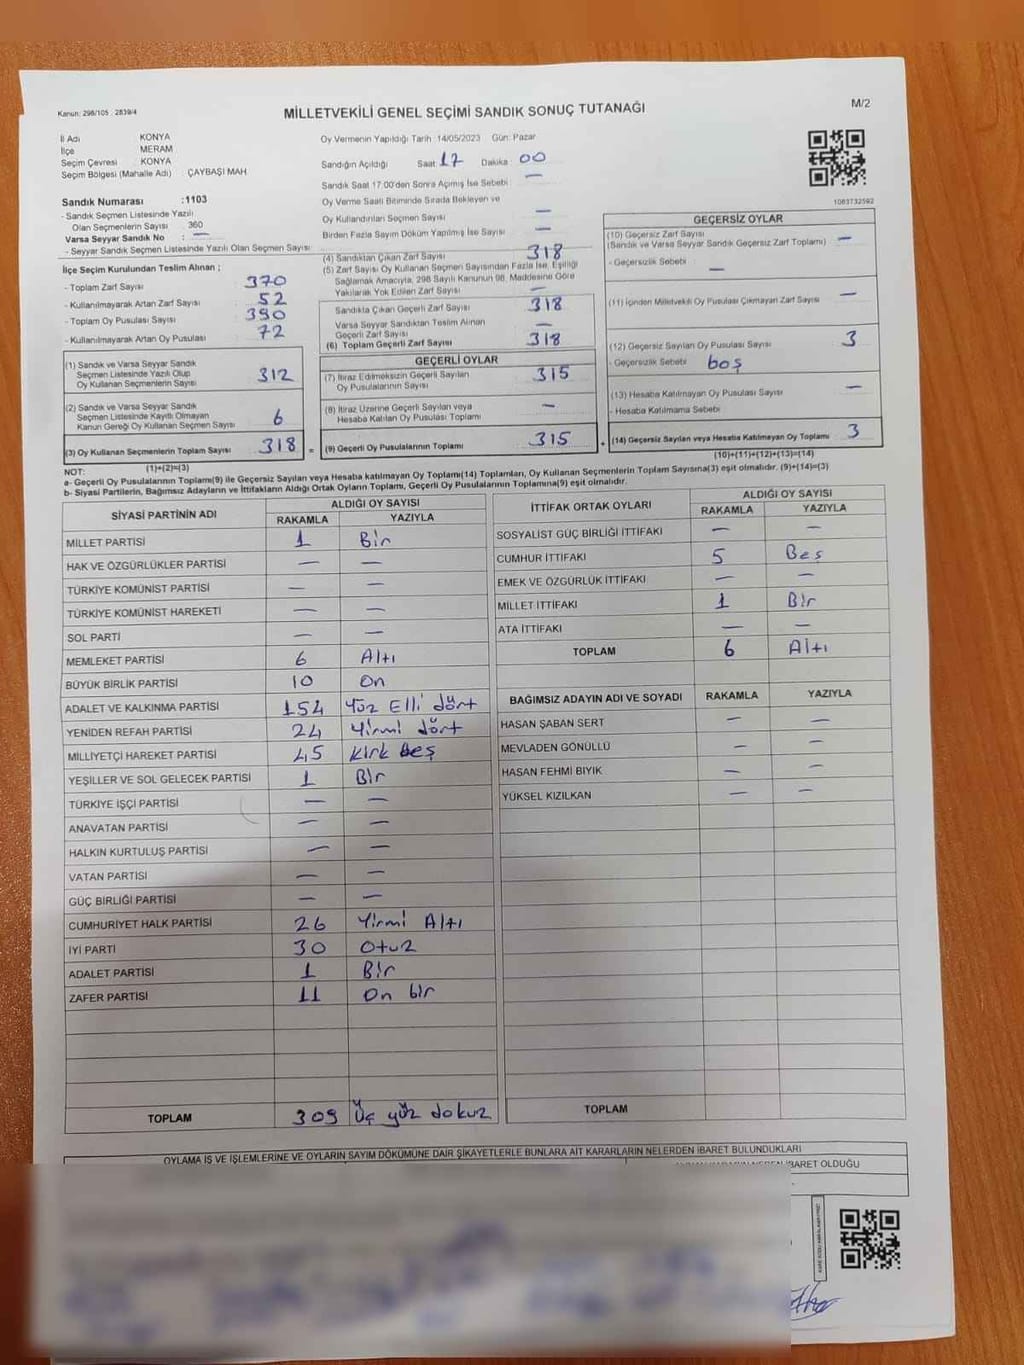 Kanun: 298/105 , 2839/4
MİLLETVEKİLİ GENEL SEÇİMİ SANDIK SONUÇ TUTANAĞI
M/2
İl Adı KONYA
İlçe MERAM
Seçim Çevresi KONYA
Seçim Bölgesi (Mahalle Adı) ÇAYBAŞI MAH
Sandık Numarası :1103
- Sandık Seçmen Listesinde Yazılı
Olan Seçmenlerin Sayısı 360
Varsa Seyyar Sandık No : —
- Seyyar Sandık Seçmen Listesinde Yazılı Olan Seçmen Sayısı
İlçe Seçim Kurulundan Teslim Alınan ;
- Toplam Zarf Sayısı 370
- Kullanılmayarak Artan Zarf Sayısı 52
- Toplam Oy Pusulası Sayısı 390
- Kullanılmayarak Artan Oy Pusulası 72
(1) Sandık ve Varsa Seyyar Sandık
Seçmen Listesinde Yazılı Olup
Oy Kullanan Seçmenlerin Sayısı 312
(2) Sandık ve Varsa Seyyar Sandık
Seçmen Listesinde Kayıtlı Olmayan
Kanun Gereği Oy Kullanan Seçmen Sayısı 6
(3) Oy Kullanan Seçmenlerin Toplam Sayısı 318 =
(1)+(2)=(3)
Oy Vermenin Yapıldığı Tarih :14/05/2023 Gün: Pazar
Sandığın Açıldığı Saat 17 Dakika 00
Sandık Saat 17.00'den Sonra Açımış İse Sebebi —
Oy Verme Saati Bitiminde Sırada Bekleyen ve
Oy Kullandırılan Seçmen Sayısı —
Birden Fazla Sayım Döküm Yapılmış İse Sayısı —
(4) Sandıktan Çıkan Zarf Sayısı 318
(5) Zarf Sayısı Oy Kullanan Seçmen Sayısından Fazla İse, Eşitliği
Sağlamak Amacıyla, 298 Sayılı Kanunun 98. Maddesine Göre
Yakılarak Yok Edilen Zarf Sayısı —
Sandıkta Çıkan Geçerli Zarf Sayısı 318
Varsa Seyyar Sandıktan Teslim Alınan
Geçerli Zarf Sayısı —
(6) Toplam Geçerli Zarf Sayısı 318
GEÇERLİ OYLAR
(7) İtiraz Edilmeksizin Geçerli Sayılan
Oy Pusulalarının Sayısı 315
(8) İtiraz Üzerine Geçerli Sayılan veya
Hesaba Katılan Oy Pusulası Toplamı —
(9) Geçerli Oy Pusulalarının Toplamı 315 +
1063732592
GEÇERSİZ OYLAR
(10) Geçersiz Zarf Sayısı
(Sandık ve Varsa Seyyar Sandık Geçersiz Zarf Toplamı) —
- Geçersizlik Sebebi —
(11) İçinden Milletvekili Oy Pusulası Çıkmayan Zarf Sayısı —
(12) Geçersiz Sayılan Oy Pusulası Sayısı 3
- Geçersizlik Sebebi boş
(13) Hesaba Katılmayan Oy Pusulası Sayısı —
- Hesaba Katılmama Sebebi
(14) Geçersiz Sayılan veya Hesaba Katılmayan Oy Toplamı 3
(10)+(11)+(12)+(13)=(14)
NOT:
a- Geçerli Oy Pusulalarının Toplamı(9) ile Geçersiz Sayılan veya Hesaba katılmayan Oy Toplamı(14) Toplamları, Oy Kullanan Seçmenlerin Toplam Sayısına(3) eşit olmalıdır. (9)+(14)=(3)
b- Siyasi Partilerin, Bağımsız Adayların ve İttifakların Aldığı Ortak Oyların Toplamı, Geçerli Oy Pusulalarının Toplamına(9) eşit olmalıdır.
SİYASİ PARTİNİN ADI ALDIĞI OY SAYISI
RAKAMLA YAZIYLA
MİLLET PARTİSİ 1 Bir
HAK VE ÖZGÜRLÜKLER PARTİSİ — —
TÜRKİYE KOMÜNİST PARTİSİ — —
TÜRKİYE KOMÜNİST HAREKETİ — —
SOL PARTİ — —
MEMLEKET PARTİSİ 6 Altı
BÜYÜK BİRLİK PARTİSİ 10 on
ADALET VE KALKINMA PARTİSİ 154 Yüz Elli dört
YENİDEN REFAH PARTİSİ 24 Yirmi dört
MİLLİYETÇİ HAREKET PARTİSİ 45 Kırk beş
YEŞİLLER VE SOL GELECEK PARTİSİ 1 Bir
TÜRKİYE İŞÇİ PARTİSİ — —
ANAVATAN PARTİSİ — —
HALKIN KURTULUŞ PARTİSİ — —
VATAN PARTİSİ — —
GÜÇ BİRLİĞİ PARTİSİ — —
CUMHURİYET HALK PARTİSİ 26 Yirmi Altı
İYİ PARTİ 30 Otuz
ADALET PARTİSİ 1 Bir
ZAFER PARTİSİ 11 On bir
TOPLAM 309 Üç yüz dokuz
İTTİFAK ORTAK OYLARI ALDIĞI OY SAYISI
RAKAMLA YAZIYLA
SOSYALİST GÜÇ BİRLİĞİ İTTİFAKI — —
CUMHUR İTTİFAKI 5 Beş
EMEK VE ÖZGÜRLÜK İTTİFAKI — —
MİLLET İTTİFAKI 1 Bir
ATA İTTİFAKI — —
TOPLAM 6 Altı
BAĞIMSIZ ADAYIN ADI VE SOYADI RAKAMLA YAZIYLA
HASAN ŞABAN SERT — —
MEVLADEN GÖNÜLLÜ — —
HASAN FEHMİ BIYIK — —
YÜKSEL KIZILKAN — —
TOPLAM
OYLAMA İŞ VE İŞLEMLERİNE VE OYLARIN SAYIM DÖKÜMÜNE DAİR ŞİKAYETLERLE BUNLARA AİT KARARLARIN NELERDEN İBARET BULUNDUKLARI
İBARET OLDUĞU